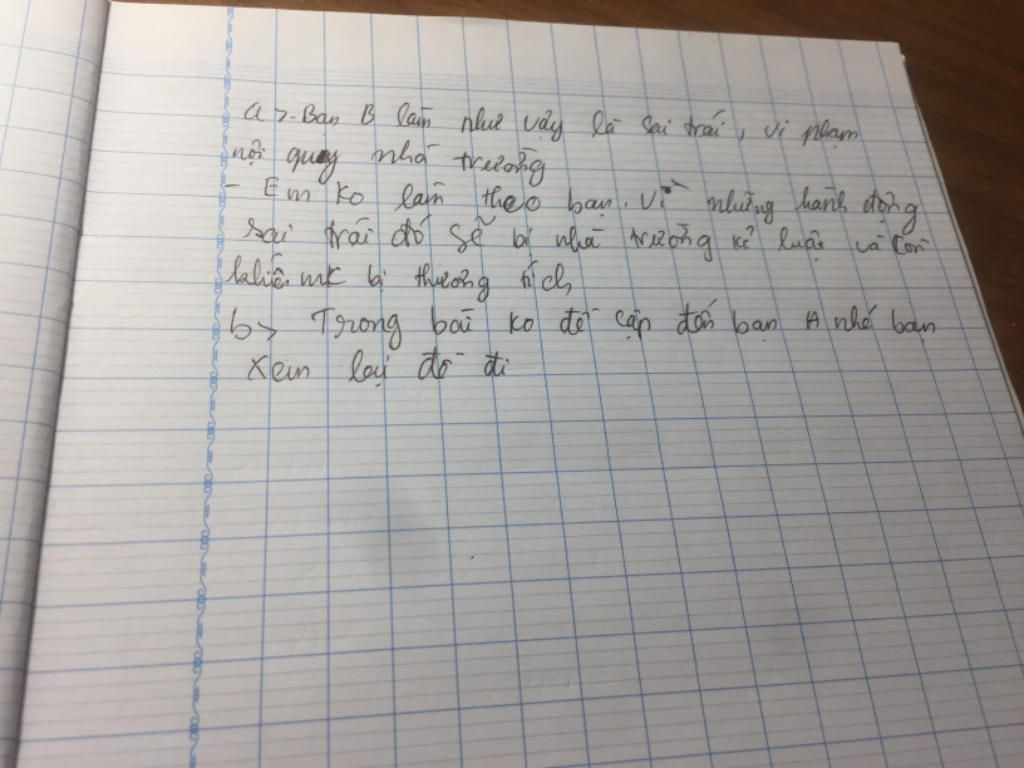 a > - Bạn B làm như vậy là sai trái, vi phạm
nội quy nhà trường
- Em ko làm theo bạn. Vì những hành động
sai trái đó sẽ bị nhà trường kỉ luật và còn
khiến mk bị thương tích
b > Trong bài ko đề cập đến bạn A nhé bạn
xem lại đề đi